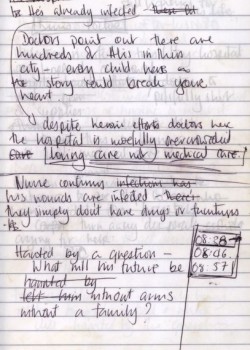 to Her already infected
Doctors point out there are
hundreds of Alis in this
city - every child here a
story could break your
heart
despite heroic efforts doctors here
the hospital is woefully overcrowded
loving care not medical care!
Nurse continues infection has
his wounds are infected
they simply don't have drugs or
Haunted by a question -
What will his future be
haunted by
left him without arms
without a family?
08.46.
08:57